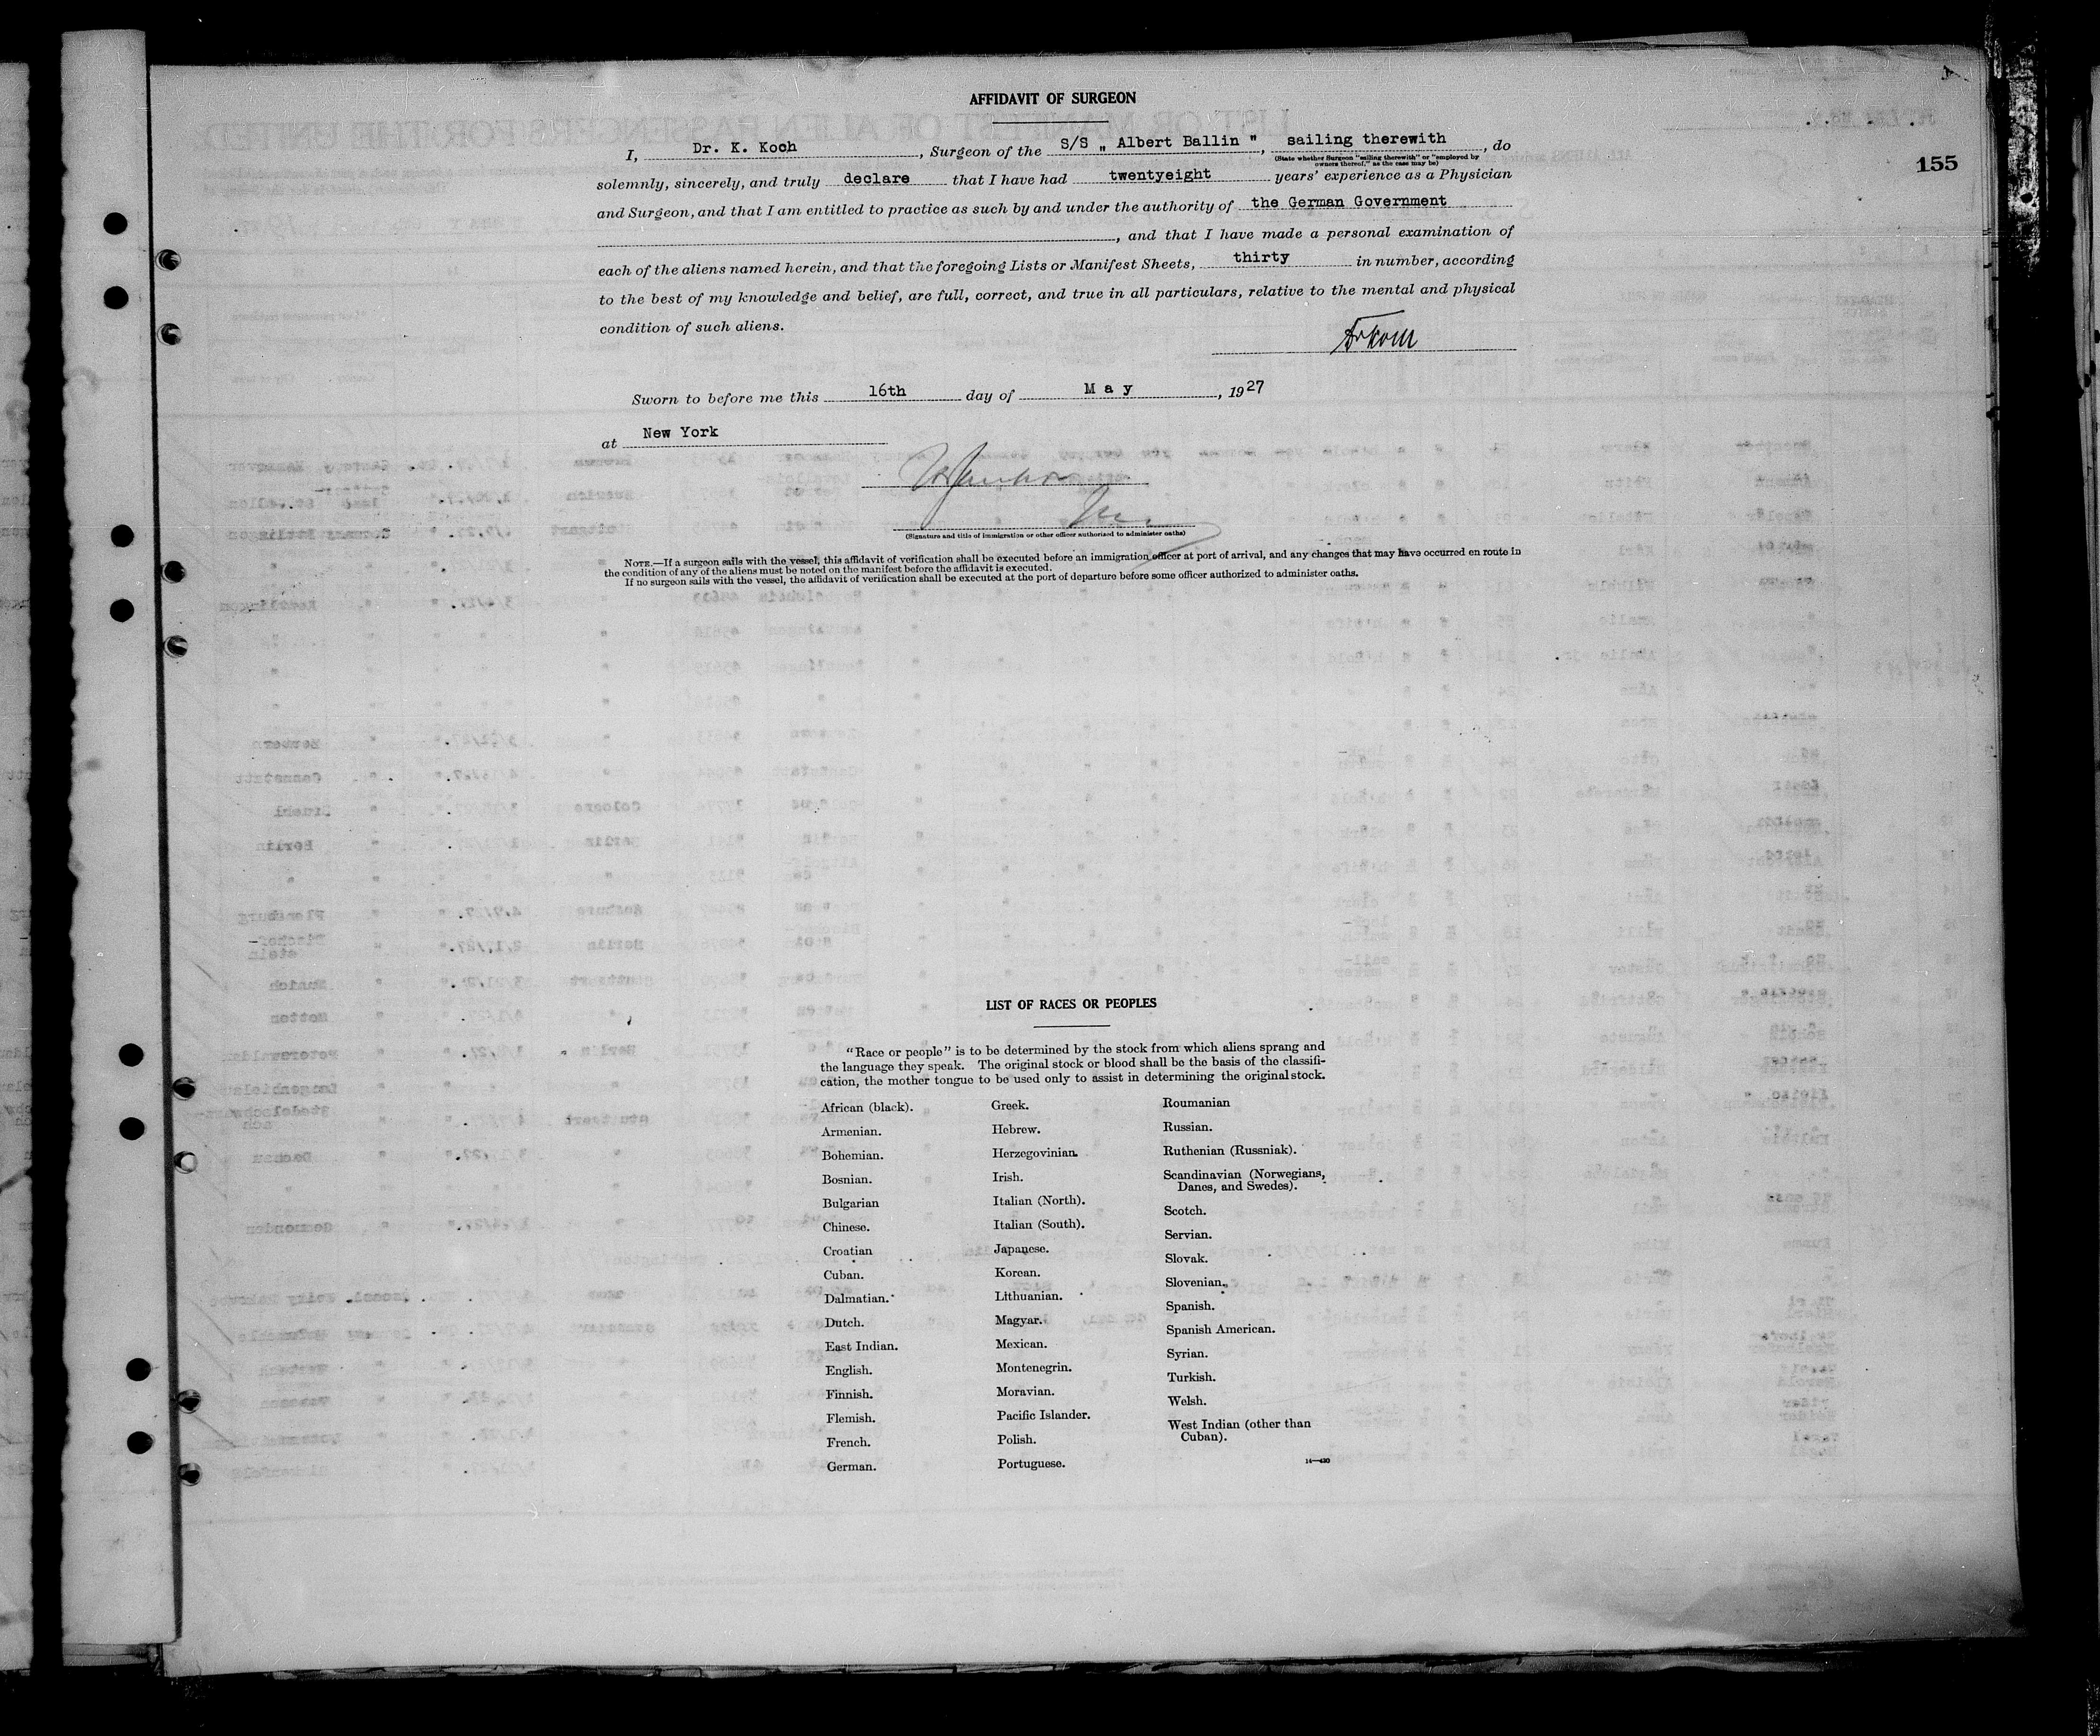 AFFIDAVIT OF SURGEON
155
I, Dr. K. Koch, Surgeon of the S/S „ Albert Ballin ", sailing therewith, do
(State whether Surgeon "sailing therewith" or "employed by
owners thereof," as the case may be)
solemnly, sincerely, and truly declare that I have had twentyeight years' experience as a Physician
and Surgeon, and that I am entitled to practice as such by and under the authority of the German Government
, and that I have made a personal examination of
each of the aliens named herein, and that the foregoing Lists or Manifest Sheets, thirty in number, according
to the best of my knowledge and belief, are full, correct, and true in all particulars, relative to the mental and physical
condition of such aliens.
Sworn to before me this 16th day of May, 1927
at New York
(Signature and title of immigration or other officer authorized to administer oaths)
NOTE.—If a surgeon sails with the vessel, this affidavit of verification shall be executed before an immigration officer at port of arrival, and any changes that may have occurred en route in
the condition of any of the aliens must be noted on the manifest before the affidavit is executed.
If no surgeon sails with the vessel, the affidavit of verification shall be executed at the port of departure before some officer authorized to administer oaths.
LIST OF RACES OR PEOPLES
"Race or people" is to be determined by the stock from which aliens sprang and
the language they speak. The original stock or blood shall be the basis of the classifi-
cation, the mother tongue to be used only to assist in determining the original stock.
African (black).
Armenian.
Bohemian.
Bosnian.
Bulgarian
Chinese.
Croatian
Cuban.
Dalmatian.
Dutch.
East Indian.
English.
Finnish.
Flemish.
French.
German.
Greek.
Hebrew.
Herzegovinian.
Irish.
Italian (North).
Italian (South).
Japanese.
Korean.
Lithuanian.
Magyar.
Mexican.
Montenegrin.
Moravian.
Pacific Islander.
Polish.
Portuguese.
Roumanian
Russian.
Ruthenian (Russniak).
Scandinavian (Norwegians,
Danes, and Swedes).
Scotch.
Servian.
Slovak.
Slovenian.
Spanish.
Spanish American.
Syrian.
Turkish.
Welsh.
West Indian (other than
Cuban).
14—430